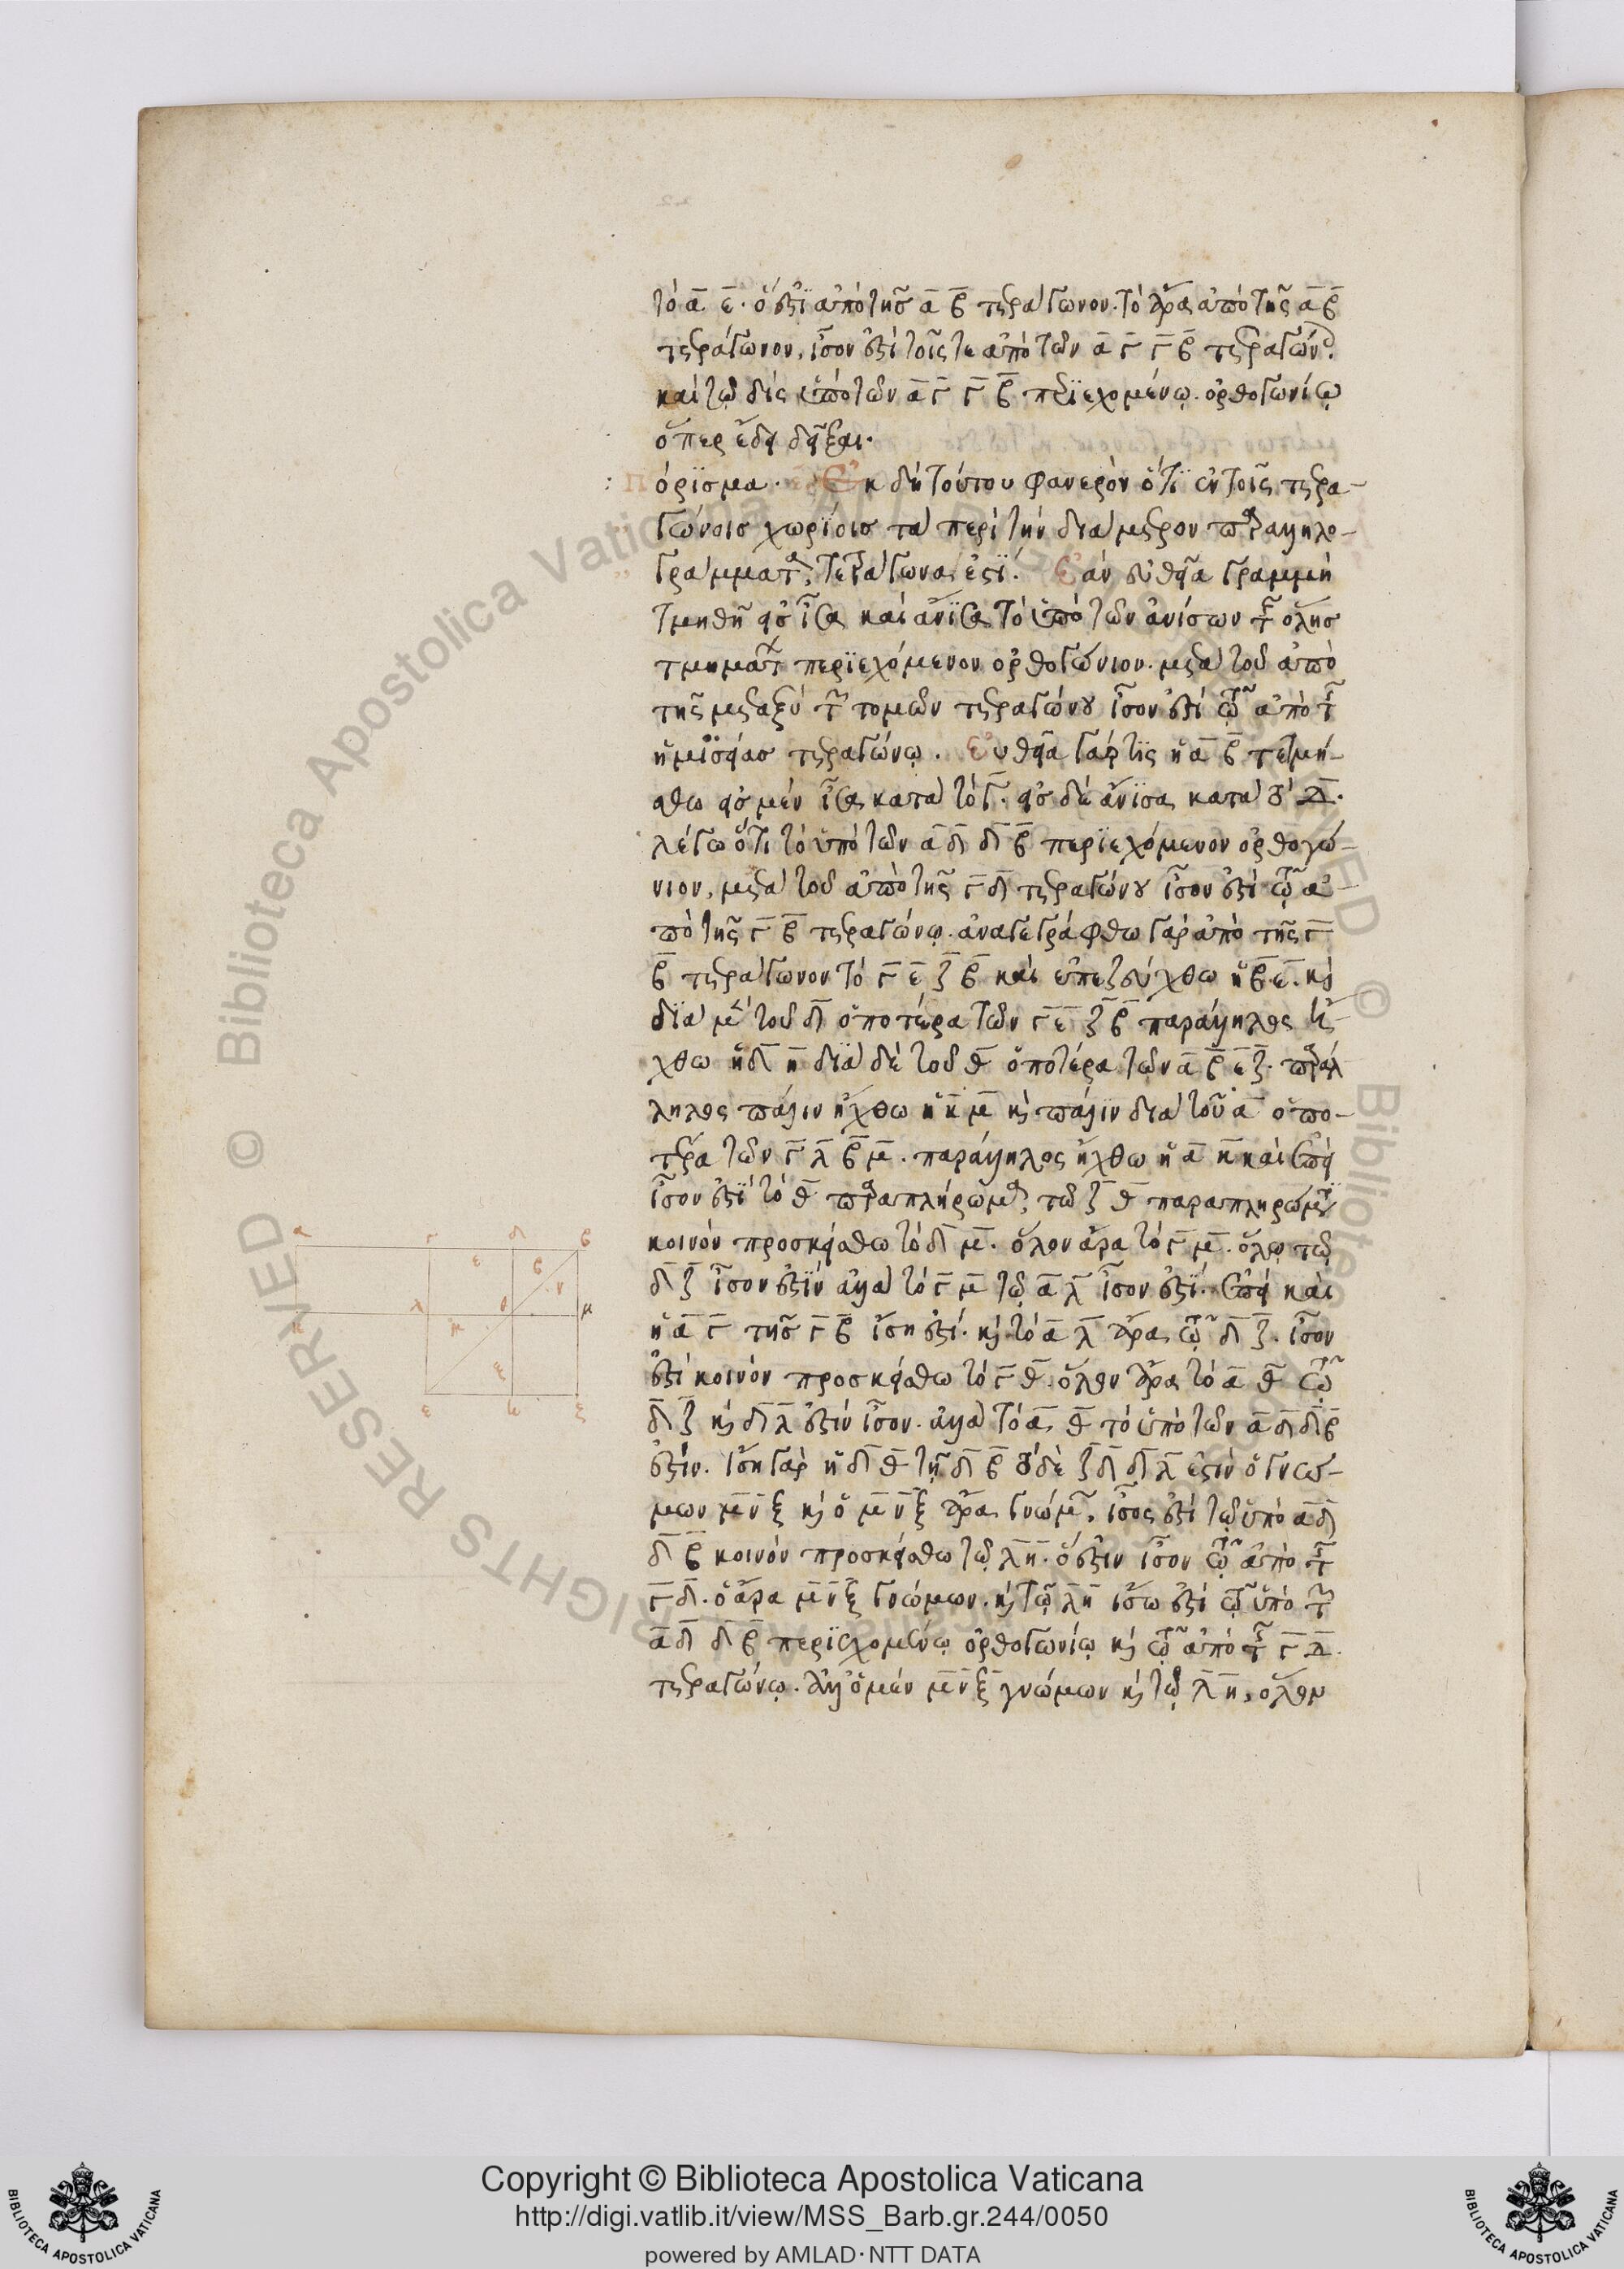 τὸ α ε. ὅ ἐστι ἀπὸ τῆσ α β τετράγωνον. τὸ ἄρα ἀπὸ τῆς α β
τετράγωνον, ἴσον ἐστὶ τοῖς τε ἀπὸ τῶν α γ γ β τετραγών
καὶ τῷ δὶς ὑπὸ τῶν α γ γ β περϊεχομένῳ. ὀρθογωνίῳ
ὅπερ ἔδει δεῖξαι.
Πόρϊσμα. Ἐκ δὴ τούτου φανερὸν ὅτϊ ἐν τοῖς τετρα-
γώνοισ χωρϊοισ τὰ περὶ τὴν διάμετρον παραλληλο-
γράμματα, τετράγωνα ἐστϊ. Ἐὰν εὐθεῖα γραμμὴ
τμηθῆ εἰσ ἴσα καὶ ἄνϊσα τὸ ὑπὸ τῶν ἀνίσων τῆς ὅλησ
τμημάτ περϊεχόμενον ὀρθογώνιον. μετὰ τοῦ ἀπὸ
τῆς μεταξὺ τῶν τομῶν τετραγώνου ἴσον ἐστὶ τῷ ἀπὸ τῆς
ἡμϊσείασ τετραγώνῳ. Εὐθεῖα γάρ τϊς ἡ α β τετμή-
σθω εἰσ μὲν ἴσα κατὰ τὸ γ. εἰσ δὲ ἄνϊσα κατὰ τὸ δ.
λέγω ὅτι τὸ ὑπὸ τῶν α δ δ β περϊεχόμενον ὀρθογώ-
νιον, μετὰ τοῦ ἀπὸ τῆς γ δ τετραγώνου ἴσον ἐστὶ τῷ ἀ-
πὸ τῆς γ β τετραγώνῳ. ἀναγεγράφθω γὰρ ἀπὸ τῆς γ
β τετράγωνον τὸ γ ε ζ β καὶ ἐπεζεύχθω ἡ β ε. κὶ
δϊὰ μὲν τοῦ δ ὁποτέρα τῶν γ ε ζ β παράλληλος ἤ-
χθω ἡ δ η διὰ δὲ τοῦ θ ὁποτέρα τῶν α β ε ζ. παράλ
ληλος πάλιν ἤχθω ἡ κ μ κὶ πάλϊν διὰ τοῦ α ὁπο-
τέρα τῶν γ λ β μ. παράλληλος ἤχθω ἡ α κ καὶ ἐπεὶ
ἴσον ἐστϊ τὸ θ παραπλήρωμα, τῶ ζ θ παραπληρώμ
κοινὸν προσκείσθω τὸ δ μ. ὅλον ἄρα τὸ γ μ. ὅλῳ τῷ
δ ζ ἴσον ἐστϊν ἀλλὰ τὸ γ μ τῷ α λ ἴσον ἐστϊ. ἐπεὶ καὶ
ἡ α γ τῆσ γ β ἴση ἐστί. κὶ τὸ α λ ἄρα τῷ δ ζ. ἴσον
ἐστὶ κοινὸν προσκείσθω τὸ γ θ. ὅλον ἄρα τὸ α θ τῷ
δ ζ κὶ δ λ ἐστὶν ἴσον. ἀλλὰ τὸ α θ τὸ ὑπὸ τῶν α δ δ β
ἐστὶν. ἴση γὰρ ἡ δ θ τῇ δ β τὸ δὲ ζ δ δ λ ἐστὶν ὁ γνώ-
μων μ ν ξ κὶ ὁ μ ν ξ ἄρα γνώμ, ἴσος ἐστὶ τῷ ὑπὸ α δ
δ β κοινὸν προσκείσθω τῷ λ η. ὅ ἐστιν ἴσον τῷ ἀπὸ τῆς
γ δ. ὁ ἄρα μ ν ξ γνώμων. κὶ τῷ λ η ἴσω ἐστὶ τῷ ὑπὸ τῶν
α δ δ β περϊεχομένῳ ὀρθογωνίῳ κὶ τῷ ἀπὸ τῆς γ δ.
τετραγώνῳ. ἀλλ ὁ μὲν μ ν ξ γνώμων κὶ τῷ λ η, ὅλον
α γ δ β
ε β ν
κ λ θ μ
μ
ξ
ε η ξ
Copyright © Biblioteca Apostolica Vaticana
http://digi.vatlib.it/view/MSS_Barb.gr.244/0050
powered by AMLAD·NTT DATA
BIBLIOTECA APOSTOLICA VATICANA
BIBLIOTECA APOSTOLICA VATICANA